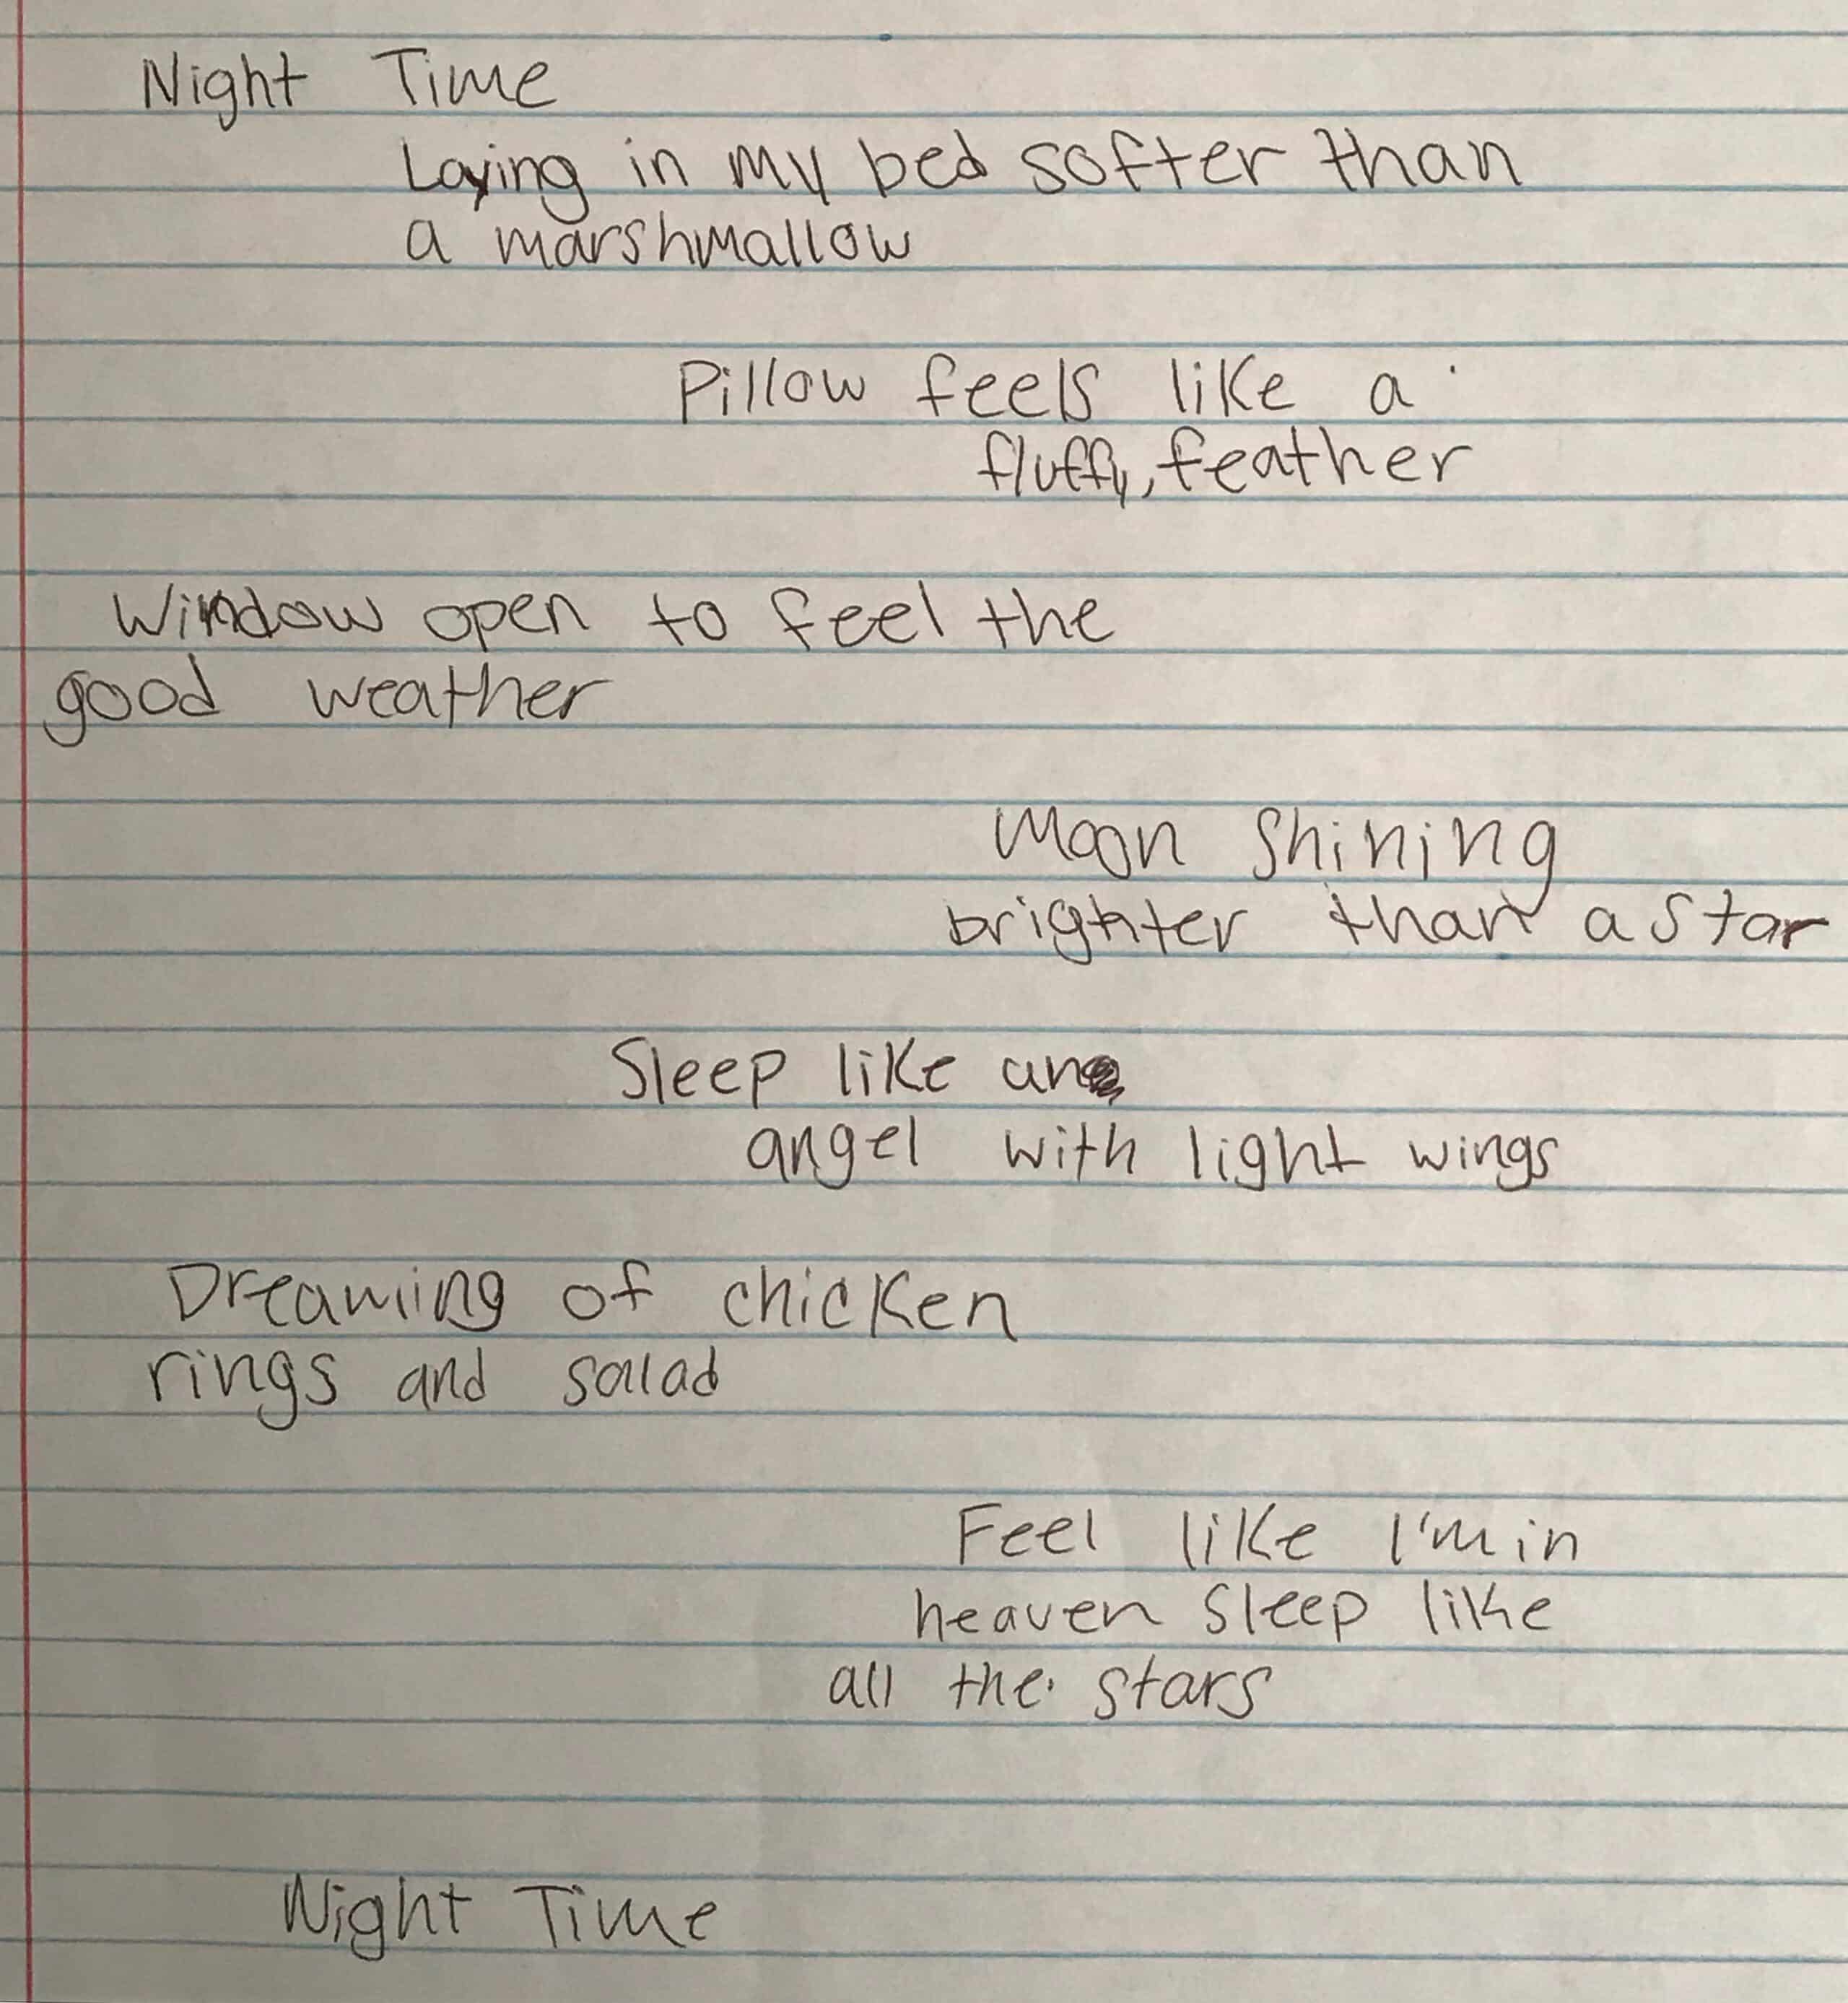 Night Time
Laying in my bed softer than
a marshmallow
Pillow feels like a
fluffy, feather
Window open to feel the
good weather
Moon Shining
brighter than a star
Sleep like an
angel with light wings
Dreaming of chicken
rings and salad
Feel like I'm in
heaven sleep like
all the stars
Night Time